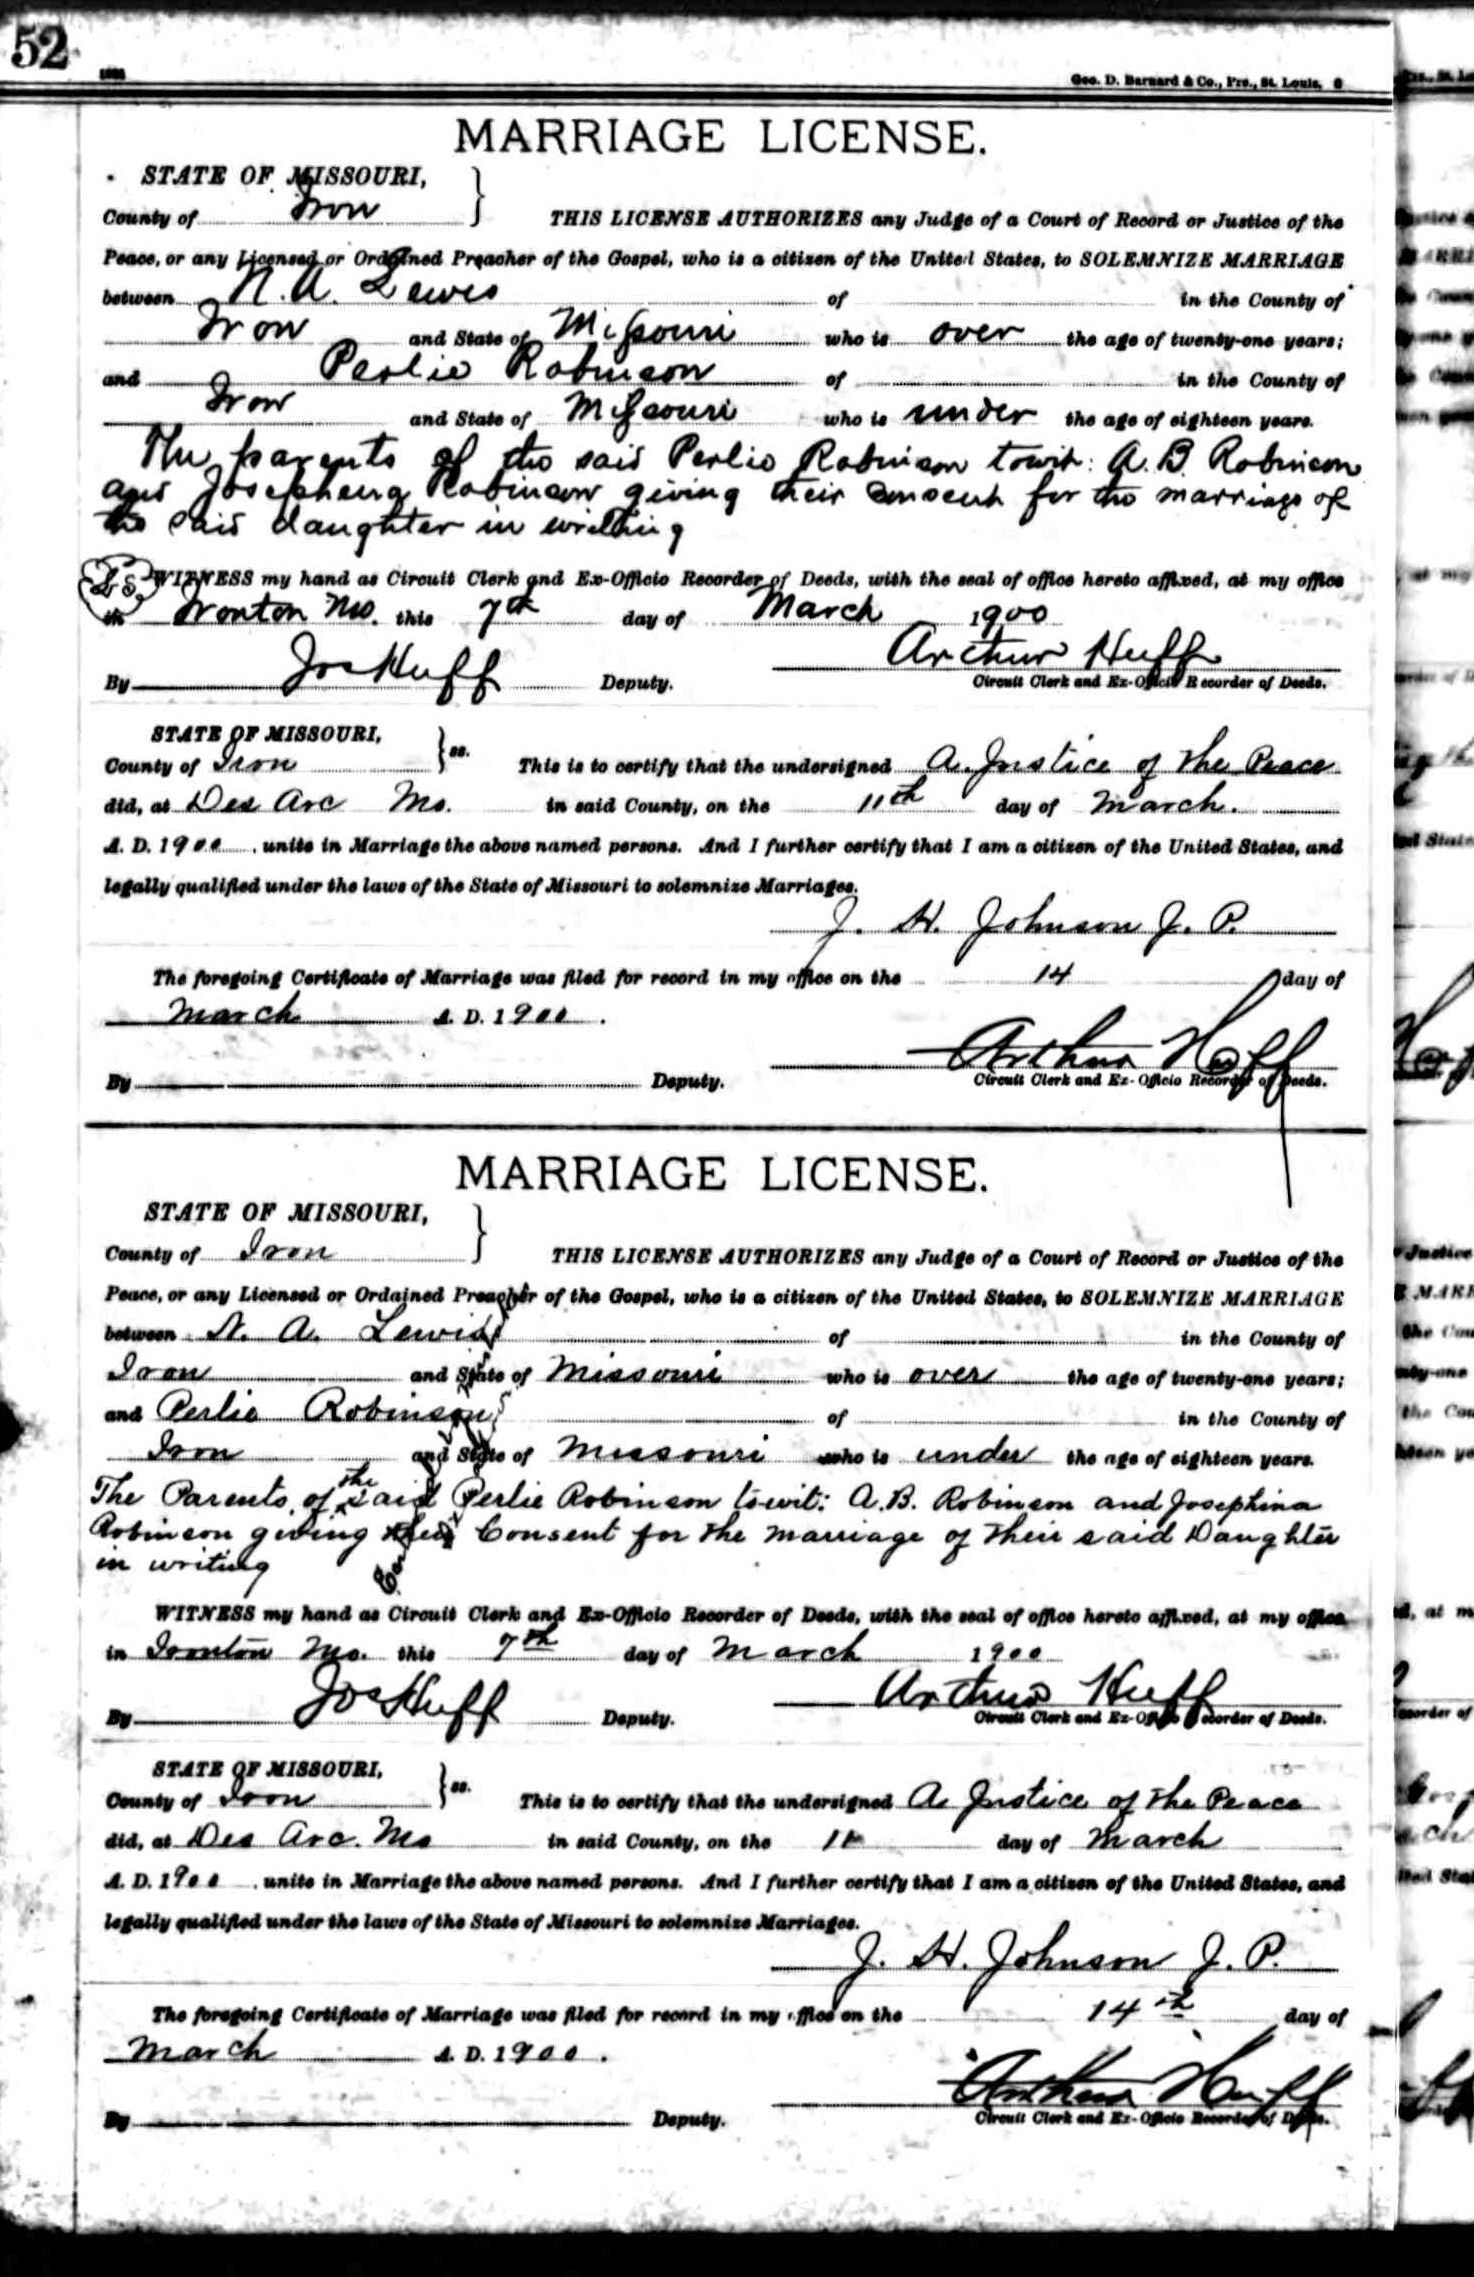 52
Geo. D. Barnard & Co., Pre., St. Louis, 6
MARRIAGE LICENSE.
STATE OF MISSOURI,
County of Iron THIS LICENSE AUTHORIZES any Judge of a Court of Record or Justice of the
Peace, or any Licensed or Ordained Preacher of the Gospel, who is a citizen of the United States, to SOLEMNIZE MARRIAGE
between N. A. Lewis of in the County of
Iron and State of Missouri who is over the age of twenty-one years;
and Perlie Robinson of in the County of
Iron and State of Missouri who is under the age of eighteen years.
The parents of the said Perlie Robinson towit: A. B. Robinson
and Josephena Robinson giving their consent for the marriage of
the said daughter in writing
L S. WITNESS my hand as Circuit Clerk and Ex-Officio Recorder of Deeds, with the seal of office hereto affixed, at my office
in Ironton Mo. this 7th day of March 1900
Arthur Huff
By Jos Huff Deputy. Circuit Clerk and Ex-Officio Recorder of Deeds.
STATE OF MISSOURI,
County of Iron ss. This is to certify that the undersigned A. Justice of the Peace
did, at Des Arc Mo. in said County, on the 11th day of March.
A. D. 1900 , unite in Marriage the above named persons. And I further certify that I am a citizen of the United States, and
legally qualified under the laws of the State of Missouri to solemnize Marriages.
J. H. Johnson J. P.
The foregoing Certificate of Marriage was filed for record in my office on the 14 day of
March A. D. 1900 .
Arthur Huff
By Deputy. Circuit Clerk and Ex-Officio Recorder of Deeds.
MARRIAGE LICENSE.
STATE OF MISSOURI,
County of Iron THIS LICENSE AUTHORIZES any Judge of a Court of Record or Justice of the
Peace, or any Licensed or Ordained Preacher of the Gospel, who is a citizen of the United States, to SOLEMNIZE MARRIAGE
between N. A. Lewis of in the County of
Iron and State of Missouri who is over the age of twenty-one years;
and Perlie Robinson of in the County of
Iron and State of Missouri who is under the age of eighteen years.
The Parents of the said Perlie Robinson towit: A. B. Robinson and Josephina
Robinson giving their Consent for the marriage of their said Daughter
in writing
WITNESS my hand as Circuit Clerk and Ex-Officio Recorder of Deeds, with the seal of office hereto affixed, at my office
in Ironton Mo. this 7th day of March 1900
Arthur Huff
By Jos Huff Deputy. Circuit Clerk and Ex-Officio Recorder of Deeds.
STATE OF MISSOURI,
County of Iron ss. This is to certify that the undersigned A Justice of the Peace
did, at Des Arc. Mo in said County, on the 11 day of March
A. D. 1900 , unite in Marriage the above named persons. And I further certify that I am a citizen of the United States, and
legally qualified under the laws of the State of Missouri to solemnize Marriages.
J. H. Johnson J. P.
The foregoing Certificate of Marriage was filed for record in my office on the 14th day of
March A. D. 1900 .
Arthur Huff
By Deputy. Circuit Clerk and Ex-Officio Recorder of Deeds.